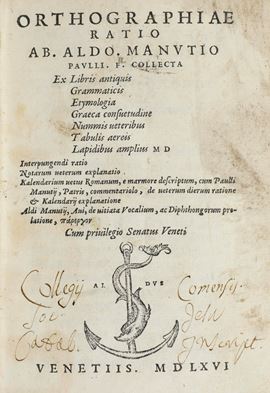 ORTHOGRAPHIAE
RATIO
AB. ALDO. MANVTIO
PAVLLI. F. COLLECTA
Ex Libris antiquis
Grammaticis
Etymologia
Graeca consuetudine
Nummis ueteribus
Tabulis aereis
Lapidibus amplius M D
Interpungendi ratio
Notarum ueterum explanatio
Kalendarium uetus Romanum, e marmore descriptum, cum Paulli
Manutij, Patris, commentariolo, de ueterum dierum ratione
& Kalendarij explanatione
Aldi Manutij, Aui, de uitiata Vocalium, ac Diphthongorum pro-
latione, πάρεργον
Cum priuilegio Senatus Veneti
AL DVS
Collegij Comensis
Soc. Jesu
Catal. Inscript.
VENETIIS. MDLXVI